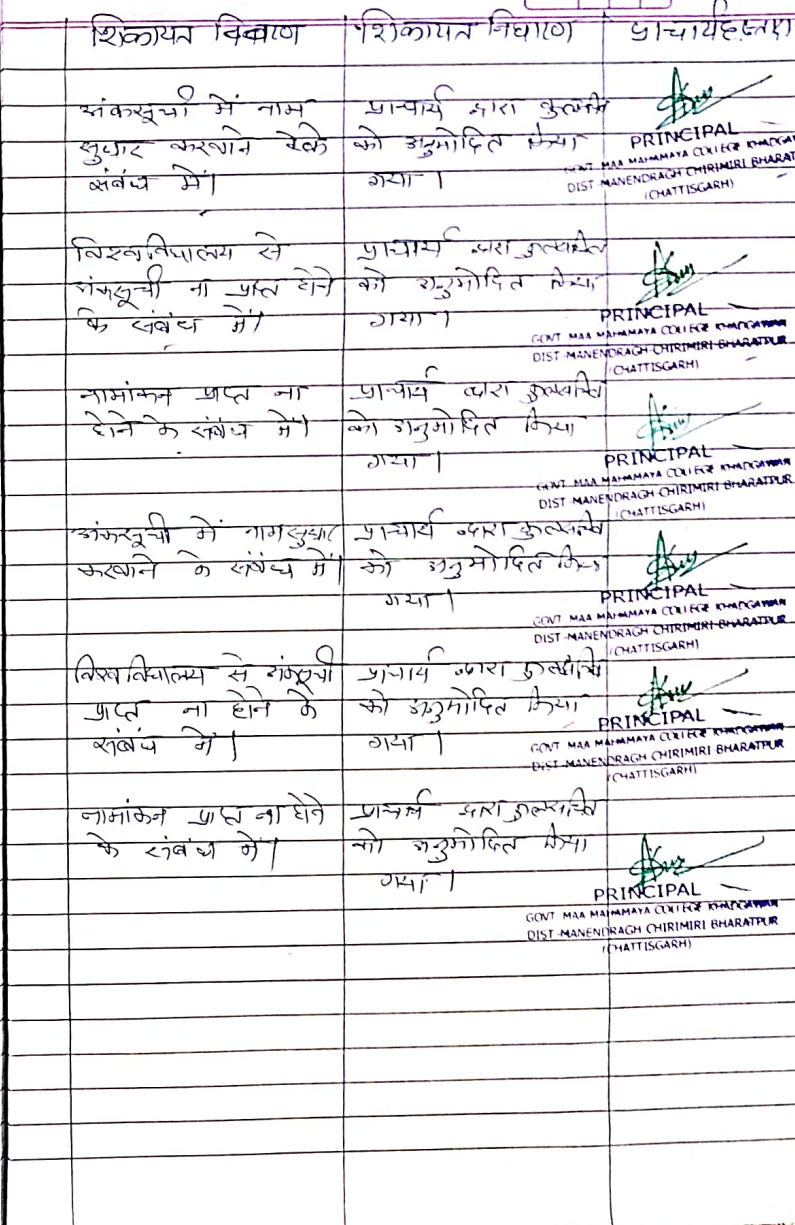 शिकायत विवरण शिकायत निधारण प्राचार्य हस्ताक्षर
अंकसूची में नाम प्राचार्य द्वारा कुलसचिव
सुधार करवाने को अनुमोदित किया
संबंध में। गया।
PRINCIPAL
GOVT MAA MAHAMAYA COLLEGE KHADGAWAN
DIST-MANENDRAGH CHIRIMIRI BHARAT
(CHATTISGARH)
विश्वविद्यालय से प्राचार्य द्वारा कुलसचिव
अंकसूची ना प्राप्त होने को अनुमोदित किया
के संबंध में। गया।
PRINCIPAL
GOVT MAA MAHAMAYA COLLEGE KHADGAWAN
DIST-MANENDRAGH CHIRIMIRI BHARATPUR
(CHATTISGARH)
नामांकन प्राप्त ना प्राचार्य द्वारा कुलसचिव
होने के संबंध में। को अनुमोदित किया
गया।
PRINCIPAL
GOVT MAA MAHAMAYA COLLEGE KHADGAWAN
DIST-MANENDRAGH CHIRIMIRI BHARATPUR
(CHATTISGARH)
अंकसूची में नाम सुधार प्राचार्य द्वारा कुलसचिव
करवाने के संबंध में। को अनुमोदित किया
गया।
PRINCIPAL
GOVT MAA MAHAMAYA COLLEGE KHADGAWAN
DIST-MANENDRAGH CHIRIMIRI BHARATPUR
(CHATTISGARH)
विश्वविद्यालय से अंकसूची प्राचार्य द्वारा कुलसचिव
प्राप्त ना होने के को अनुमोदित किया
संबंध में। गया।
PRINCIPAL
GOVT MAA MAHAMAYA COLLEGE KHADGAWAN
DIST-MANENDRAGH CHIRIMIRI BHARATPUR
(CHATTISGARH)
नामांकन प्राप्त ना होने प्राचार्य द्वारा कुलसचिव
के संबंध में। को अनुमोदित किया
गया।
PRINCIPAL
GOVT MAA MAHAMAYA COLLEGE KHADGAWAN
DIST-MANENDRAGH CHIRIMIRI BHARATPUR
(CHATTISGARH)